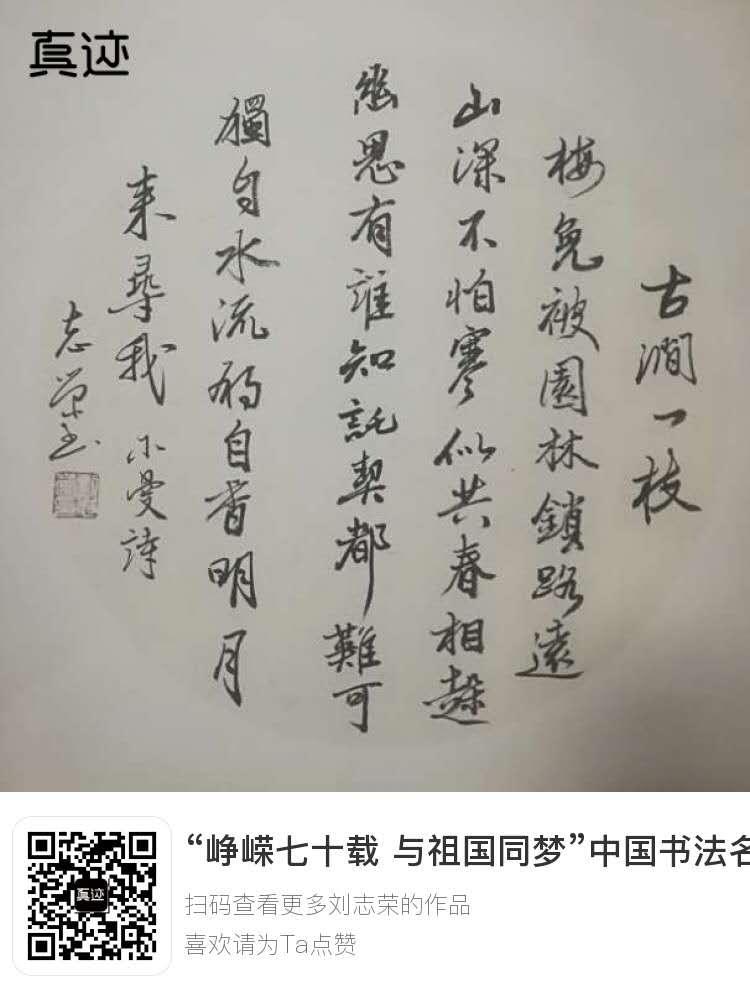 真迹
古澗一枝
梅免被園林鎖路遠
山深不怕寒似共春相趓
幽思有誰知託契都難可
獨自水流独自香明月
来尋我 小曼詩
志榮书
“峥嵘七十载 与祖国同梦”中国书法名
真迹
扫码查看更多刘志荣的作品
喜欢请为Ta点赞